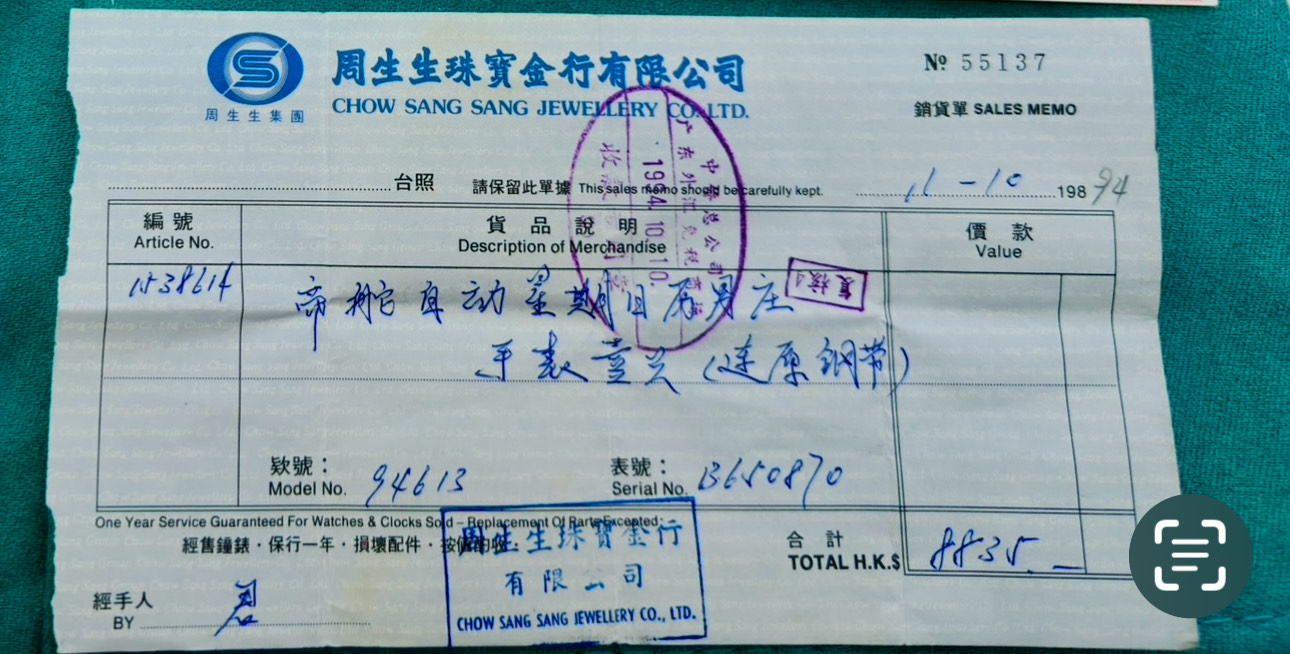 周生生珠寶金行有限公司
CHOW SANG SANG JEWELLERY CO. LTD.
周生生集團
Nº 55137
銷貨單 SALES MEMO
台照
請保留此單據 This sales memo should be carefully kept.
11-10 198 94
編號
Article No.
貨品說明
Description of Merchandise
價款
Value
1538614
帝舵自动星期日历男庄
手表壹只（连原钢带）
1994.10.10.
复核
欵號：
Model No. 94613
表號：
Serial No. B650870
One Year Service Guaranteed For Watches & Clocks Sold – Replacement Of Parts Excepted.
經售鐘錶·保行一年·損壞配件·按值
合計
TOTAL H.K.$ 8835.—
周生生珠寶金行
有限公司
CHOW SANG SANG JEWELLERY CO., LTD.
經手人
BY